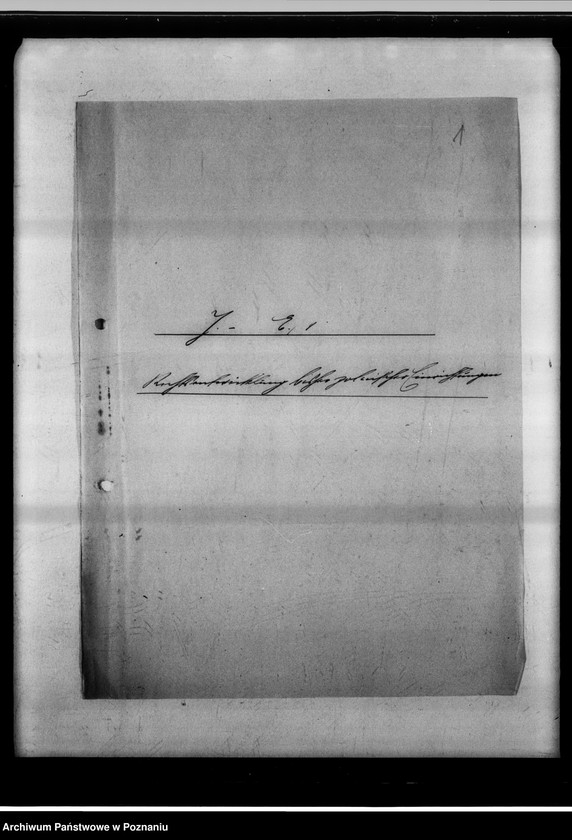 1
J. - E, 1.
Rechtsentwicklung bisher polnischer Einrichtungen
Archiwum Państwowe w Poznaniu